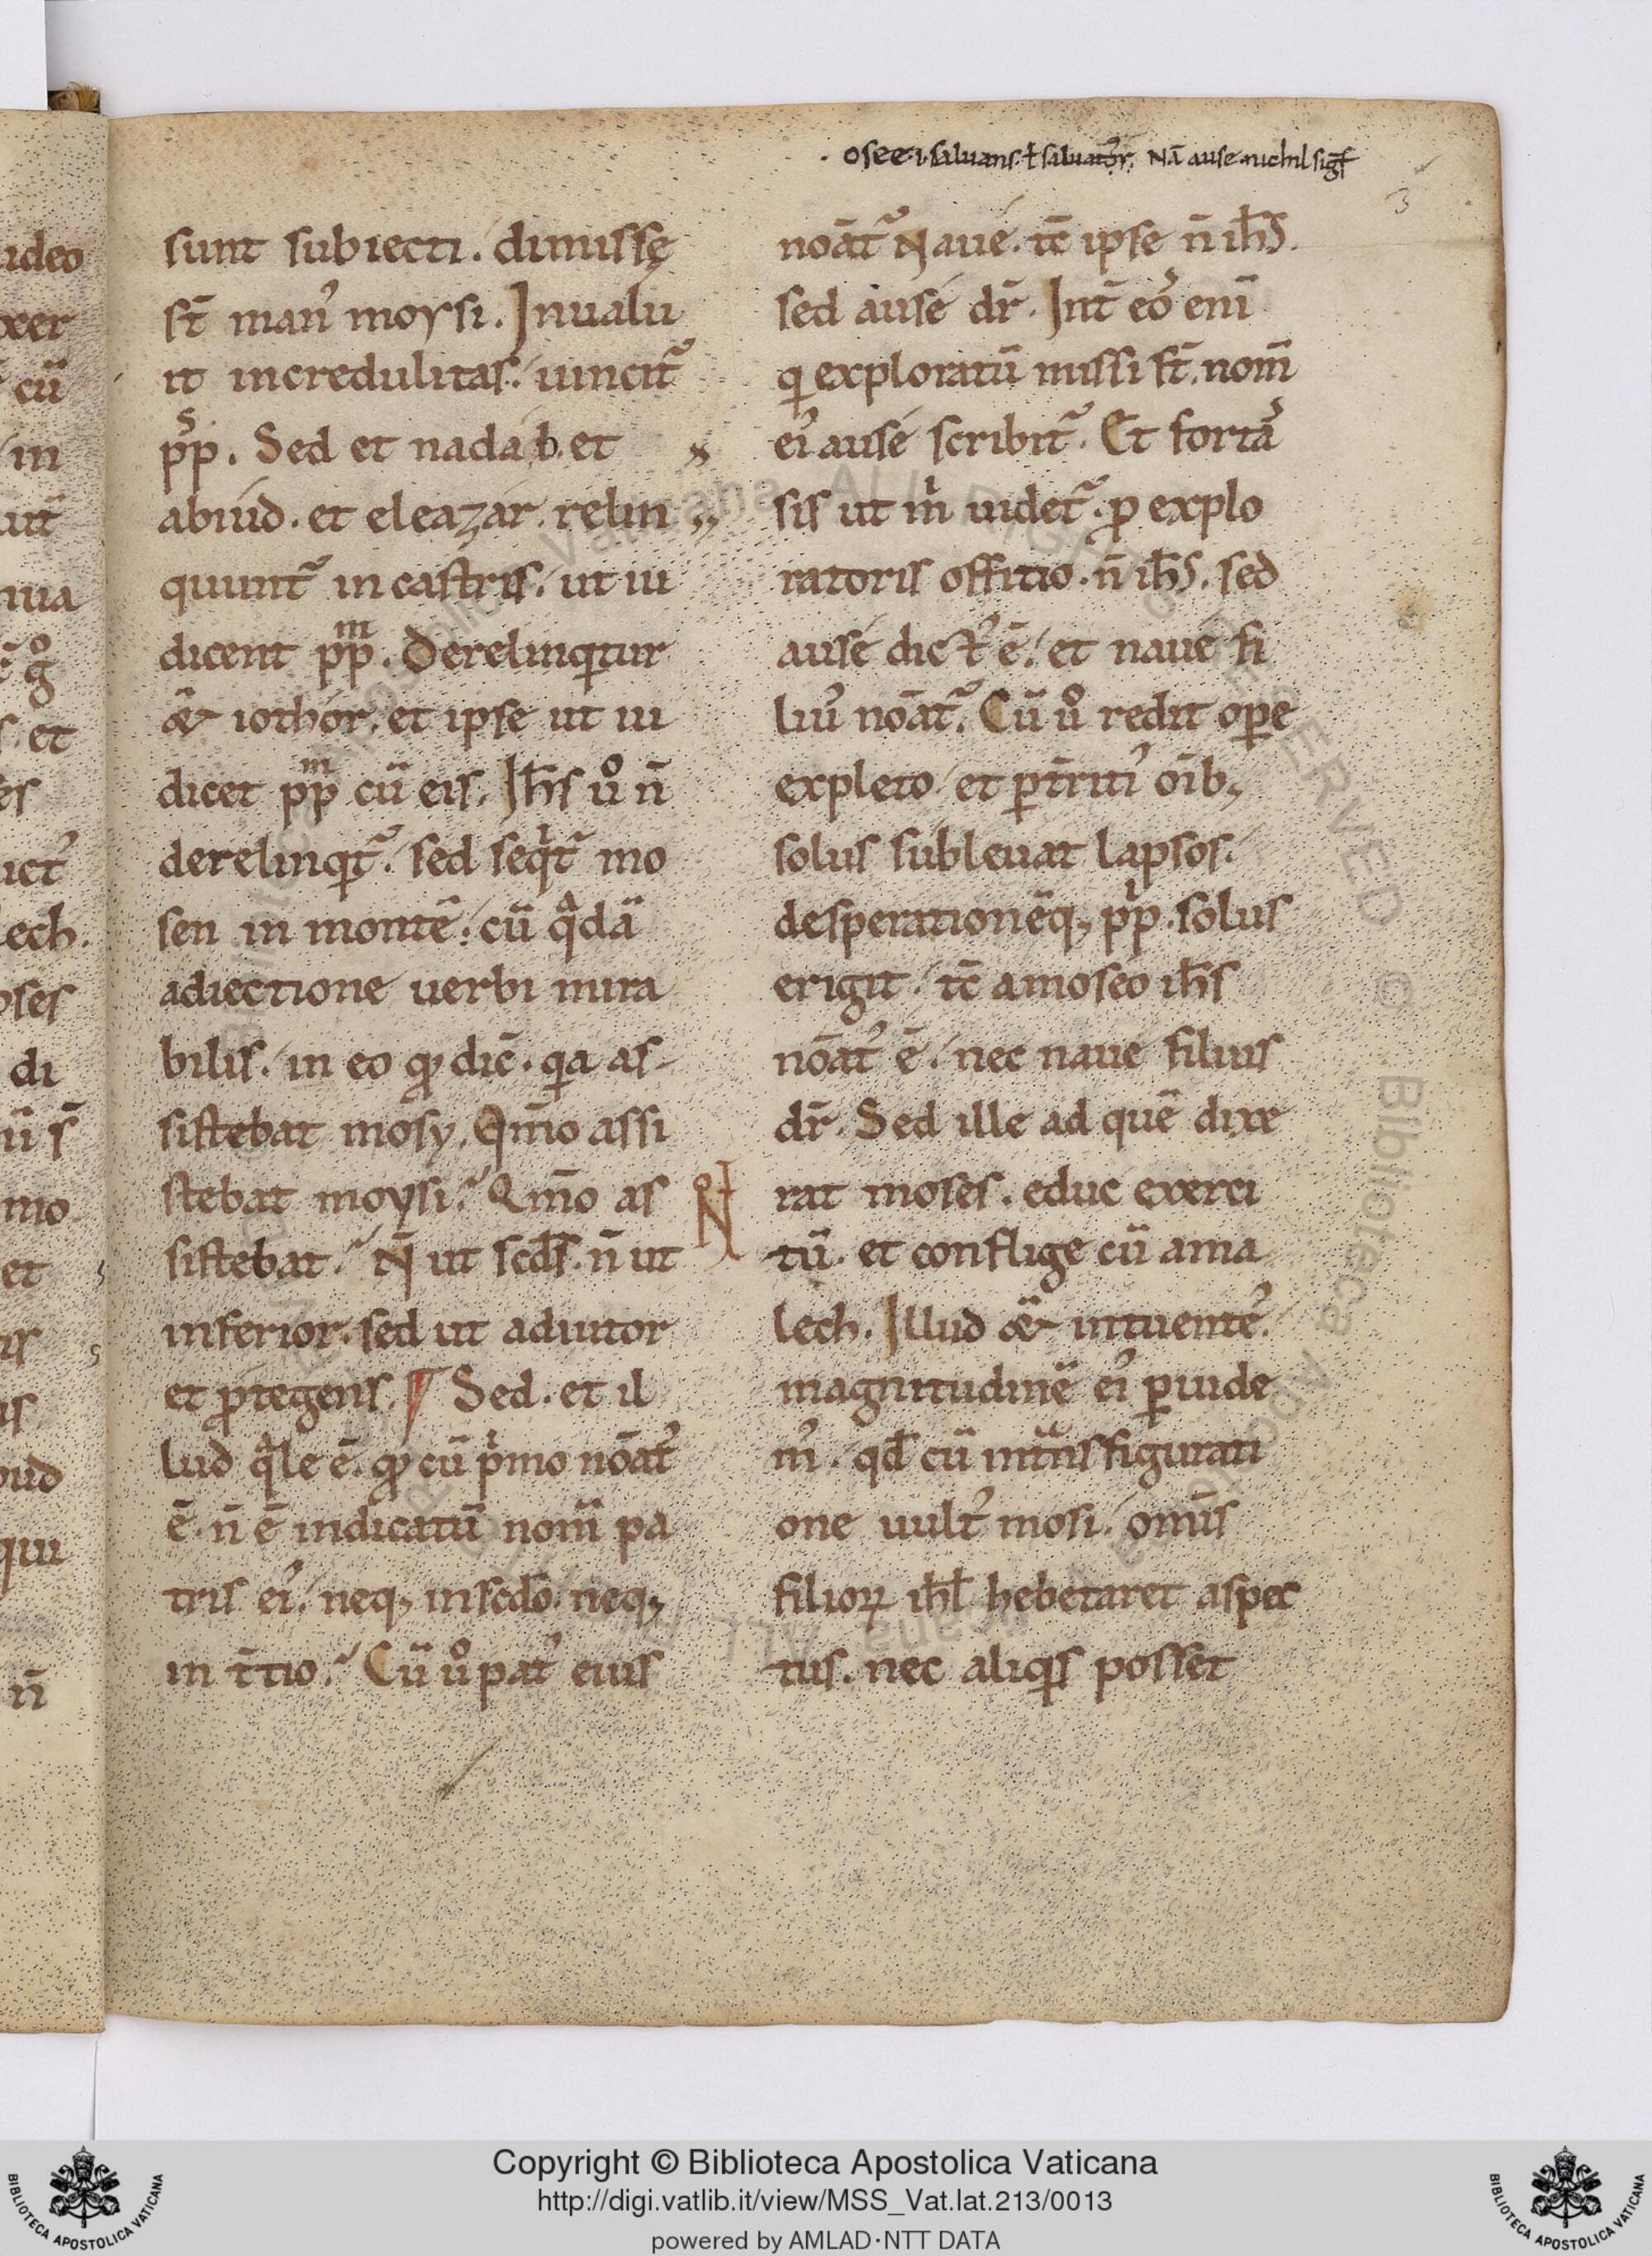 . osee .i. saluans. ł saluator. Nā ause nichil sigt
3
sunt subiecti. dimissę
st̄ man᾽ moysi. Inualu
it incredulitas. uincit᷑
pp̄s. Sed et nadab. et
abiud. et eleazar. relin
quunt᷑ in castris. ut iu
dicent pp̄m. Derelinqitur
& iothor. et ipse ut iu
dicet pp̄m cū eis. Ih̄s ůo n̄
derelinqit᷑. sed seqit᷑ mo
sen in montē. cū qadā
adiectione uerbi mira
bilis. in eo qd dic̄. qia as-
sistebat mosy. Qm̄o assi
stebat moysi. Qm̄o as
sistebat. N̄ ut scd̄s. n̄ ut
inferior. sed ut adiutor
et ꝓtegens. ¶ Sed. et il
lud qale ē. qd cū pimo nōat᾽
ē. n̄ ē indicatū nom̄ pa
tris ei᾽. neq; in scdo. neq;
in t̄tio. Cū uo pat᾽ eius
nōat᷑ Naue. tc̄ ipse n̄ ih̄s.
sed ause dr̄. Int̄ eos enī
qi exploratū missi st̄. nom̄
ei᾽ ause scribit᷑. Et forta
sis ut mi uidet᷑. ꝓ explo
ratoris offitio. n̄ ih̄s. sed
ause dict᾽ ē. et naue fi
liu᾽ nōat᷑. Cū uo redit ope
expleto et ꝑt̄riti᾽ oīb;
solus subleuat lapsos.
desperationēq; ppi. solus
erigit. tc̄ a moseo ih̄s
nōat᾽ ē. nec naue filius
dr̄. Sed ille ad quē dixe
rat moses. educ exerci
tū. et conflige cū ama
lech. Illud & intuente᾽.
magnitudinē ei᾽ ꝑuide
m᾽. qd̄ cū in tansfigurati
one uult᾽ mosi. omīs
filioꝝ ih̄l hebetaret aspec
tus. nec aliqis posset
ideo
xer
cū
in
ut̄
nua
et
es
ict᾽
lech.
oses
di
ū s̄
mo
et
is
is
oud
qui
n̄
Copyright © Biblioteca Apostolica Vaticana
http://digi.vatlib.it/view/MSS_Vat.lat.213/0013
powered by AMLAD·NTT DATA
BIBLIOTECA APOSTOLICA VATICANA
BIBLIOTECA APOSTOLICA VATICANA